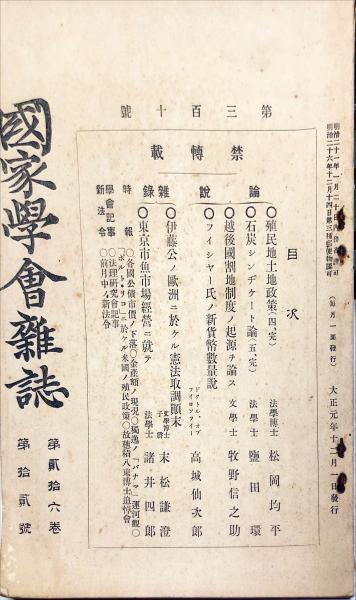 明治二十六年十二月十四日第三種郵便物認可
(每月一回發行)
大正元年十二月一日發行
第三百十號
禁轉載
目次
論說
〇殖民地土地政策(四、完) 法學博士 松岡均平
〇石炭シンヂケート論(五、完) 法學士 鹽田環
〇越後國割地制度ノ起源ヲ論ス 文學士 牧野信之助
〇フイシヤー氏ノ新貨幣數量說 ドクトル、オブ フイロソフイー 高城仙次郎
雜錄
〇伊藤公ノ歐洲ニ於ケル憲法取調顚末 文學博士 子爵 末松謙澄
〇東京市魚市場經營ニ就テ 法學士 諸井四郎
時報
〇各國公債市價ノ下落〇金產額ノ現況〇獨逸ノ「バナマ」運河觀〇
「ポルトリコ」ニ於ケル米國ノ殖民政策〇故穗積八束博士追悼會
學會記事
〇法理硏究會記事
新法令
〇前月中ノ新法令
國家學會雜誌
第貳拾六卷
第拾貳號